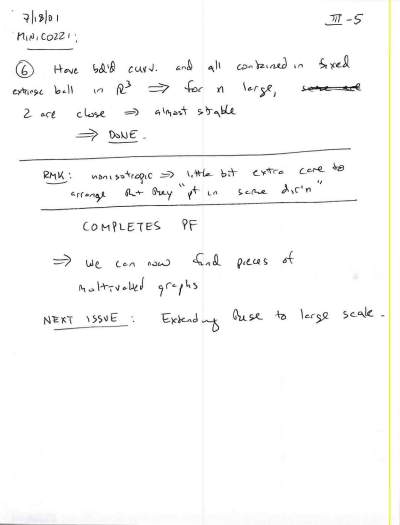 7/18/01
III-5
MINICOZZI:
⑥ Have bd'd curv. and all contained in fixed
extrinsic ball in R³ ⟹ for n large,
2 are close ⟹ almost stable
⟹ DONE.
RMK: nonisotropic ⟹ little bit extra care to
arrange that they "pt in same dir'n"
COMPLETES PF
⟹ we can now find pieces of
multivalued graphs
NEXT ISSUE: Extending these to large scale.